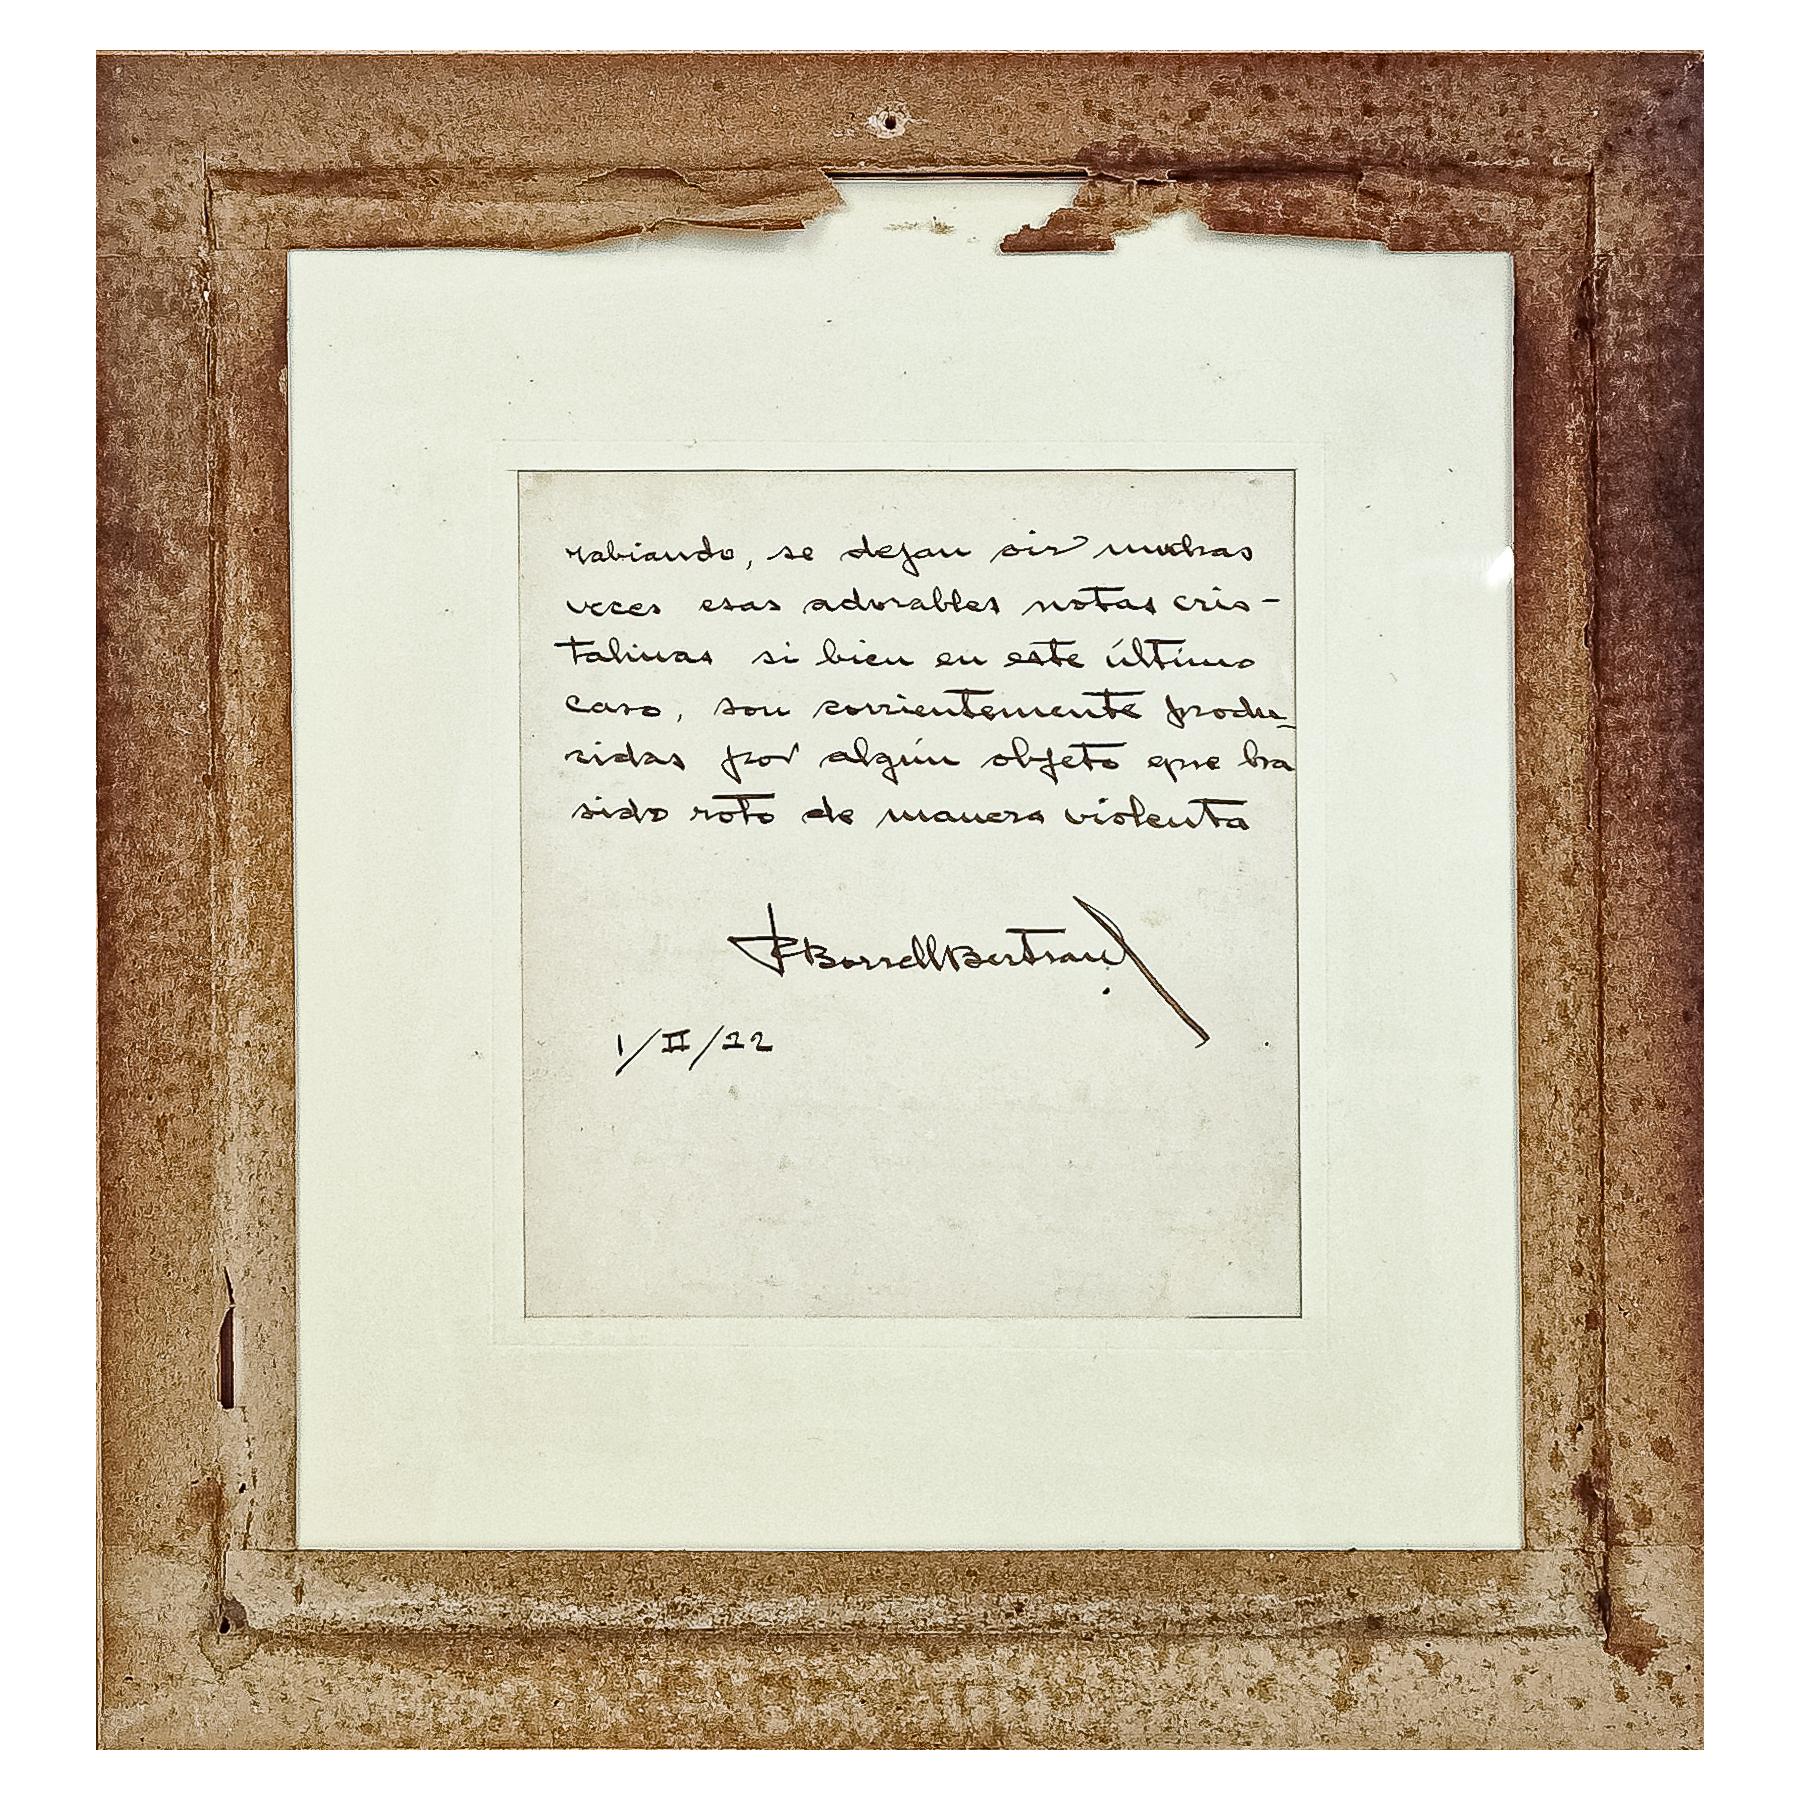 rabiando, se dejan oir muchas
veces esas adorables notas cris-
talinas si bien en este último
caso, son corrientemente produ-
cidas por algún objeto que ha
sido roto de manera violenta
Borrell Bertran
1/II/22